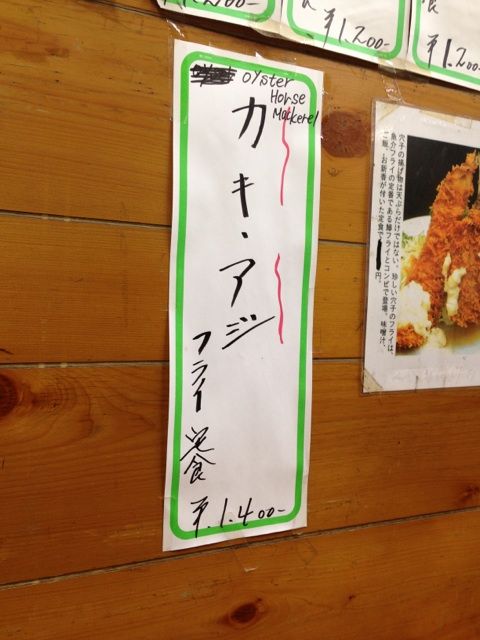 ¥1,200-
食
¥1,200-
oyster
Horse
Mackerel
カキ・アジ
フライ定食
¥.1.400-
穴子の揚げ物は天ぷらだけではない。珍しい穴子のフライは、
魚介フライの定番である鯵フライとコンビで登場。味噌汁、
ご飯、お新香が付いた定食で
円。